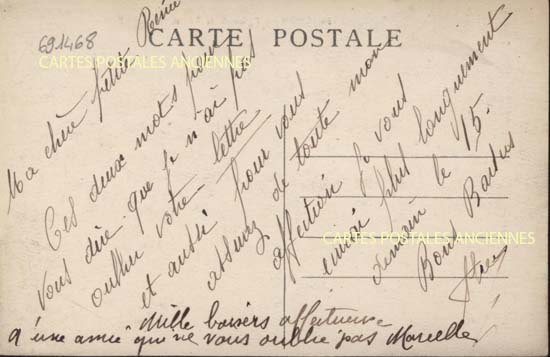 691468
CARTE POSTALE
CARTES POSTALES ANCIENNES
Ma chère petite Reine
Ces deux mots pour
vous dire que je n'ai pas
oublié votre lettre
et aussi pour vous
assurez de toute mon
affection je vous
envoie plus longuement
demain le 15.
Bons Baisers
CARTES POSTALES ANCIENNES
Mille baisers affectueux
d'une amie qui ne vous oublie pas Marcelle